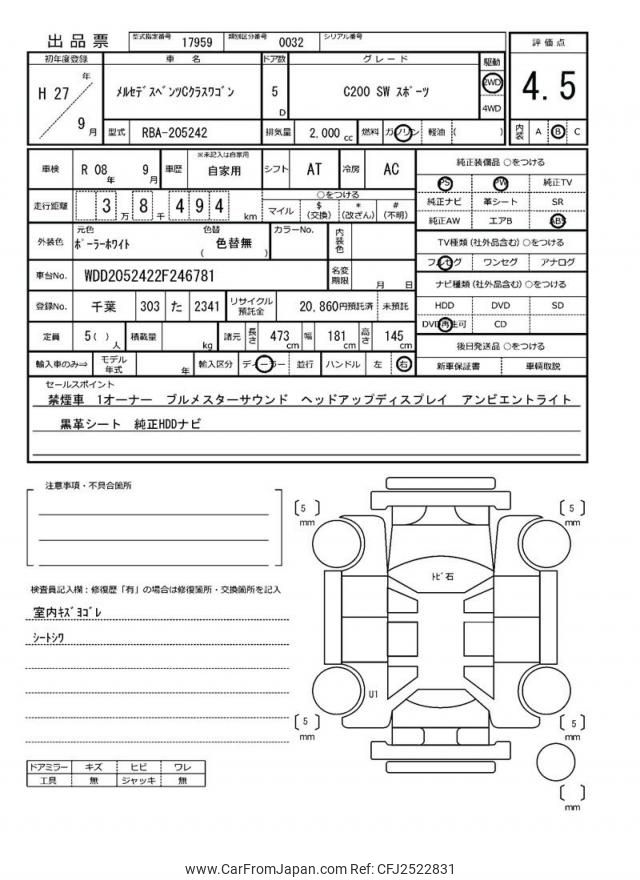 出品票 型式指定番号 17959 類別区分番号 0032 シリアル番号
初年度登録 車 名 ドア数 グレード 駆動 評価点
H 27 年 9 月 メルセデスベンツCクラスワゴン 5 D C200 SW スポーツ 2WD 4WD 4.5
型式 RBA-205242 排気量 2,000 cc 燃料 ガソリン 軽油 ( ) 内装 A B C
車検 R 08 年 9 月 車歴 ※未記入は自家用 自家用 シフト AT 冷房 AC 純正装備品 ○をつける
PS PW 純正TV
走行距離 3 万 8 千 494 km ○をつける マイル $ (交換) * (改ざん) # (不明) 純正ナビ 革シート SR
純正AW エアB ABS
外装色 元色 ポーラーホワイト 色替 ( 色替無 ) カラーNo. 内装色 TV種類 (社外品含む) ○をつける
フルセグ ワンセグ アナログ
車台No. WDD2052422F246781 名変期限 月 日 ナビ種類 (社外品含む) ○をつける
登録No. 千葉 303 た 2341 リサイクル預託金 20,860円預託済 未預託 HDD DVD SD
DVD再生可 CD
定員 5 ( ) 人 積載量 kg 諸元 長さ 473 cm 幅 181 cm 高さ 145 cm 後日発送品 ○をつける
輸入車のみ⇒ モデル年式 年 輸入区分 ディーラー 並行 ハンドル 左 右 新車保証書 車輌取説
セールスポイント
禁煙車 1オーナー ブルメスターサウンド ヘッドアップディスプレイ アンビエントライト
黒革シート 純正HDDナビ
注意事項・不具合箇所
5 mm
5 mm
トビ石
検査員記入欄:修復歴「有」の場合は修復箇所・交換箇所を記入
室内キズヨゴレ
シートシワ
U1
5 mm
5 mm
ドアミラー キズ ヒビ ワレ
工具 無 ジャッキ 無
mm
www.CarFromJapan.com Ref: CFJ2522831